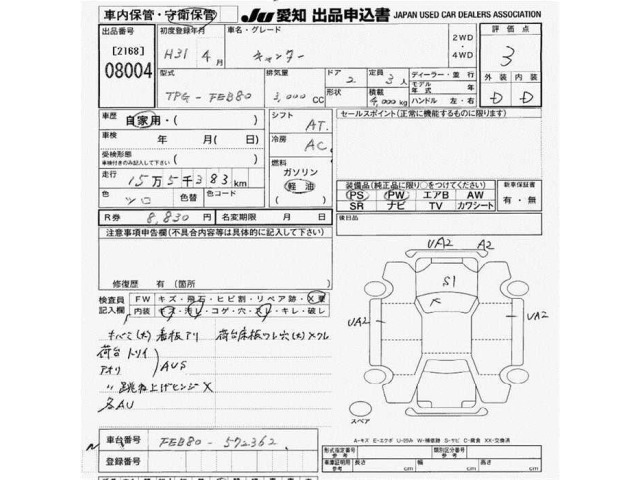 車内保管・守衛保管
JU 愛知 出品申込書 JAPAN USED CAR DEALERS ASSOCIATION
出品番号 初度登録年月 車名・グレード 2WD ・ 4WD 評価点
[2168] H31年 4月 キャンター 3
08004 型式 排気量 ドア 定員 ディーラー・並行 外装 内装
TPG-FEB80 3,000CC 2 3人 モデル年式 年 D D
形状 積載 4,000kg ハンドル 左・右
車歴 自家用・( ) シフト AT セールスポイント(正常に機能するものに限ります)
車検 年 月( 日) 冷房 AC
受検形態 車検付きのみ記入して下さい ( )
走行 15万5千383km 燃料 ガソリン 軽油 ( )
色 シロ 色替 色コード
装備品(純正品に限り○をつけてください) 新車保証書
PS PW エアB AW 有・無
SR ナビ TV カワシート
R券 8,830円 名変期限 月 日 後日品
注意事項申告欄(不具合内容等は具体的に記入して下さい)
UA2 A2
S1
UA2 UA2
修復歴 有(箇所 )
検査員記入欄 FW キズ・飛石・ヒビ割・リペア跡・X要
内装 キズ・汚レ・コゲ・穴・スレ・キレ・破レ
キバミ(大) 看板アリ 荷台床板ワレ穴(大)Xクレ
荷台 トリイ
アオリ AUS
〃 跳ね上げヒンジX
各AU
スペア
A-キズ E-エクボ U-凹み W-補修跡 S-サビ C-腐食 XX-交換済
車台番号 FEB80-572362
登録番号
形式指定番号 類別区分番号
車庫証明用参考 長さ cm 幅 cm 高さ cm